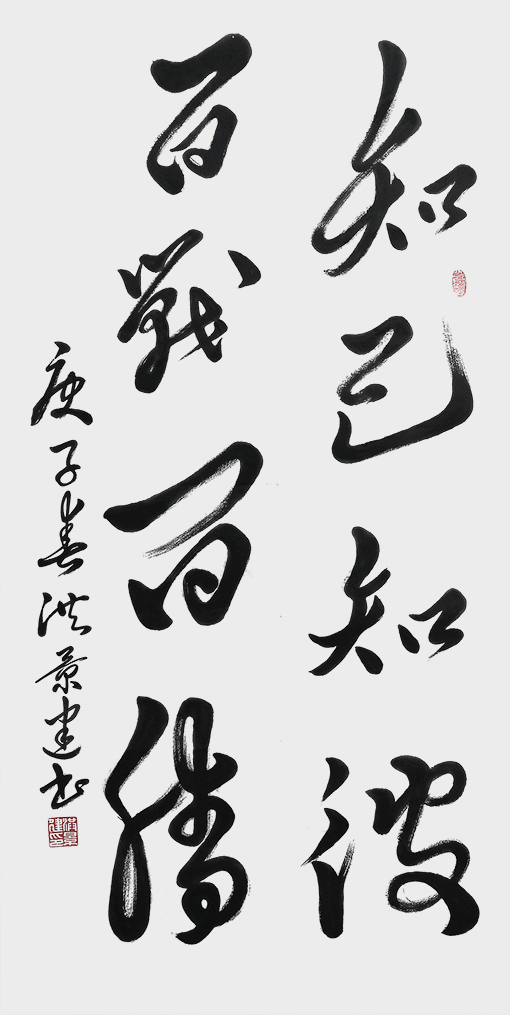 知己知彼
百戰百勝
庚子春洪景建书